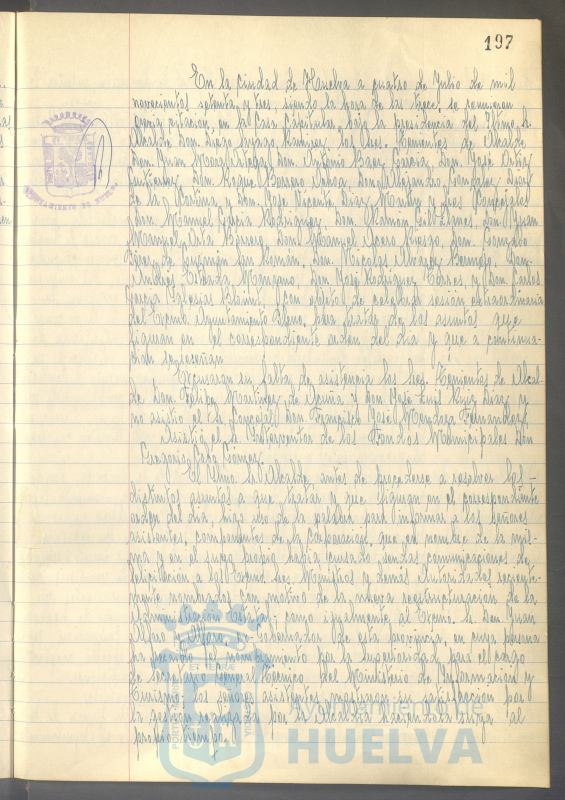 197
En la ciudad de Huelva a cuatro de Julio de mil
novecientos setenta y tres, siendo la hora de las trece, se reunieron
previa citación, en la Casa Capitular, bajo la presidencia del Iltmo. Sr.
Alcalde Don Diego Ramírez, los Sres. Tenientes de Alcalde
Don Juan Don Antonio Baez García, Don José Ortiz
Gutiérrez, Don Roque Barrero Don Alejandro González
de la y Don José Vicente Díaz y Sres. Concejales
Don Manuel García Rodríguez, Don Ramón Don Juan
Manuel Orta Barrera, Don Manuel Don Gonzalo
Pérez de Guzmán San Román, Don Nicolás Alvarez
Andrés Estrada Don José Rodríguez Torres y Don Carlos
García Iglesias con objeto de celebrar sesión extraordinaria
del Excmo. Ayuntamiento Pleno, para tratar de los asuntos que
figuran en el correspondiente orden del día y que a continua-
ción se reseñan.
Excusaron su falta de asistencia los Sres. Tenientes de Alcal-
de Don Felipe Martínez de Acuña y Don José Luis Ruiz Díaz y
no asistió el Sr. Concejal Don Francisco José Mendoza Fernández.
Asistió el Sr. Interventor de los Fondos Municipales Don
Gregorio Gómez.
El Iltmo. Sr. Alcalde antes de procederse a resolver los
distintos asuntos a que tratar y que figuran en el correspondiente
orden del día, hizo uso de la palabra para informar a los señores
asistentes, componentes de la Corporación, que en nombre de la mis-
ma y en el suyo propio había cursado sendas comunicaciones de
felicitación a los Excmos. Sres. Ministros y demás Autoridades reciente-
mente nombradas con motivo de la nueva reestructuración de la
Administración como igualmente al Excmo. Sr. Don Juan
Alfaro Alfaro, ex-Gobernador de esta provincia, en cuya persona
ha recaído el nombramiento por la Superioridad para el cargo
de Secretario General Técnico del Ministerio de Información y
Turismo. Los señores asistentes mostraron su satisfacción por
la gestión realizada por la Alcaldía
propio tiempo
AYUNTAMIENTO DE HUELVA
Ayuntamiento de
HUELVA